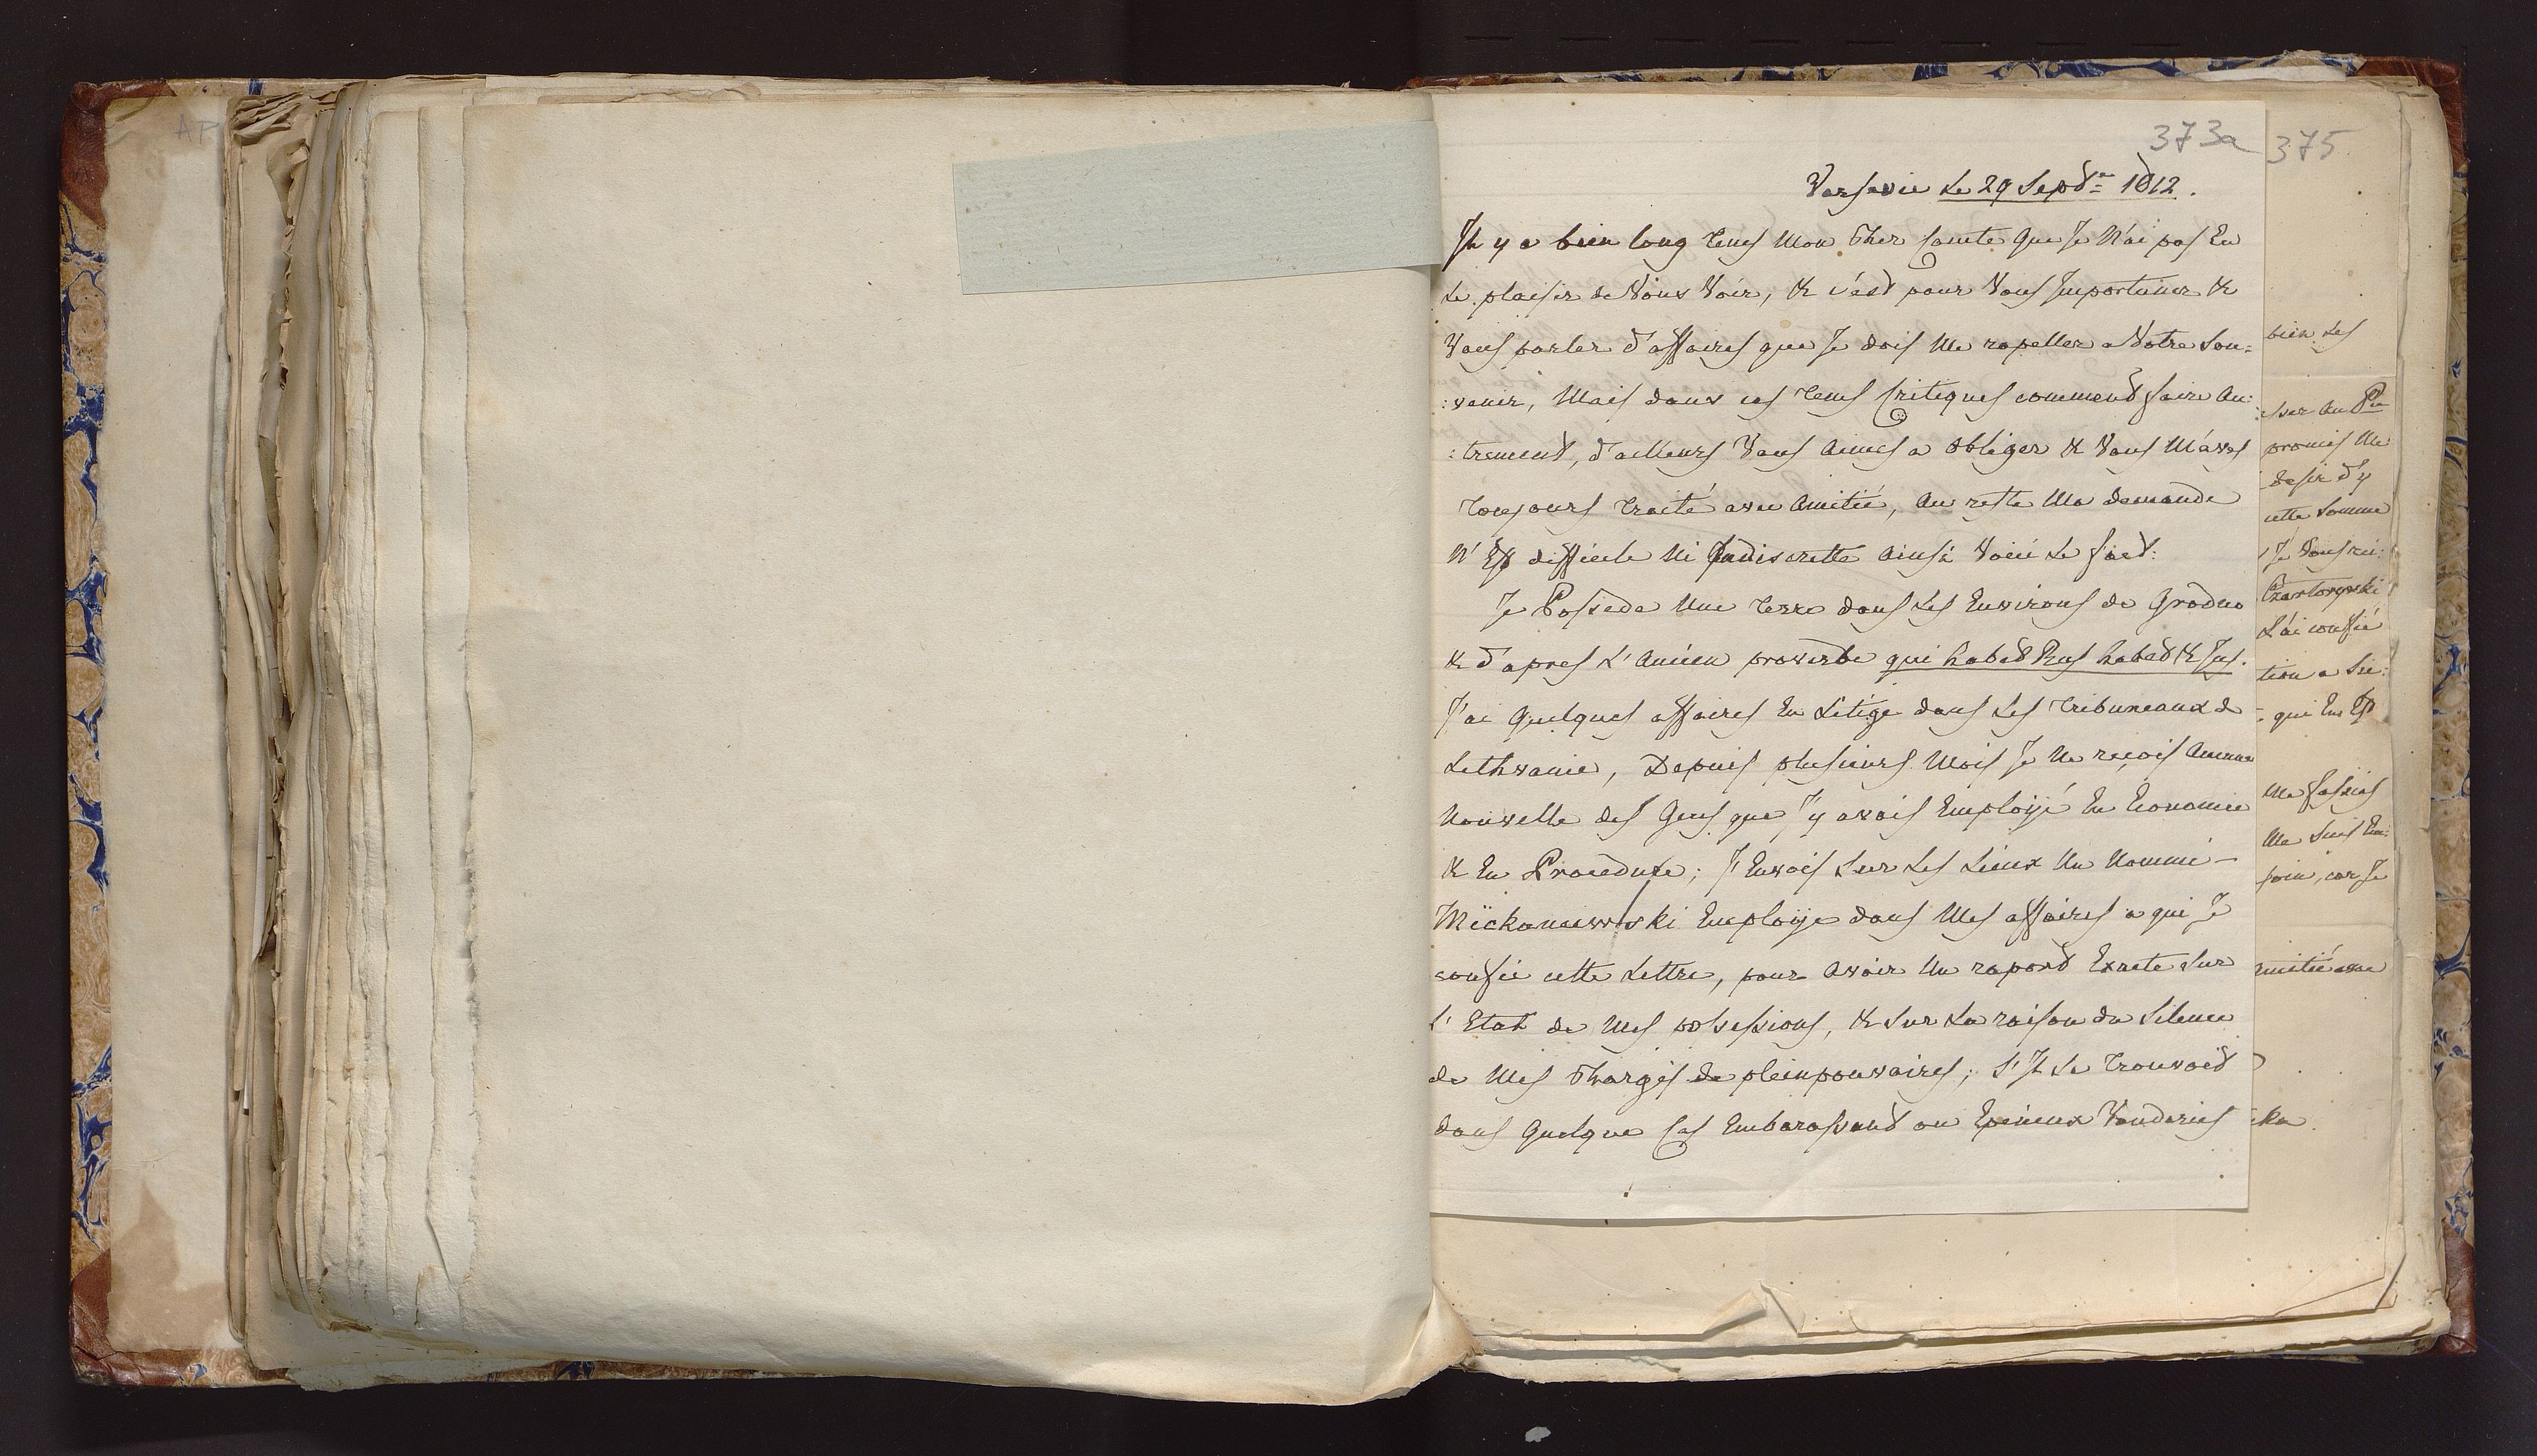 373a
375
Varsovie Le 29 Sept:re 1812.
Il y a bien long tems Mon Cher Comte Que Je N'ai pas Eu
Le plaisir de Vous Voir, & c'est pour Vous Importuner &
Vous parler d'affaires que Je dois Me rapeller a Votre Sou=
:venir, Mais dans ces tems Critiques comment faire Au:
:trement, d'ailleurs Vous Aimés a Obliger & Vous M'avés
Toujours Traité avec Amitié, Au reste Ma demande
N'Est difficile Ni Indiscrette Ainsi Voici Le fait:
Je Possede Une Terre dans Les Environs de Grodno
& d'apres L'Ancien proverbe qui habet Rus habet & Jus.
J'ai Quelques affaires En Litige dans Les Tribuneaux de
Lithvanie, Depuis plusieurs Mois Je Ne reçois Aucune
Nouvelle des Gens que J'y avois Employé En Economie
& En Procedure; J'Envois Sur Les Lieux Un Nommé -
Mickaniewski Employe dans Mes affaires a qui Je
confie cette Lettre, pour Avoir Un raport Exacte Sur
L'Etat de Mes possessions, & Sur La raison du Silence
de Mes Chargés de pleinpouvoires; S'Il Se Trouvoit
dans Quelque Cas Embarassant ou Epineux Voudriés
bien Les
promis Me
desir d'y
cette Somme
Czartoryski
L'ai confié
tion a
qui En Est
Me fassiés
Me Suis En:
soin, car Je
mitié avec
ka.